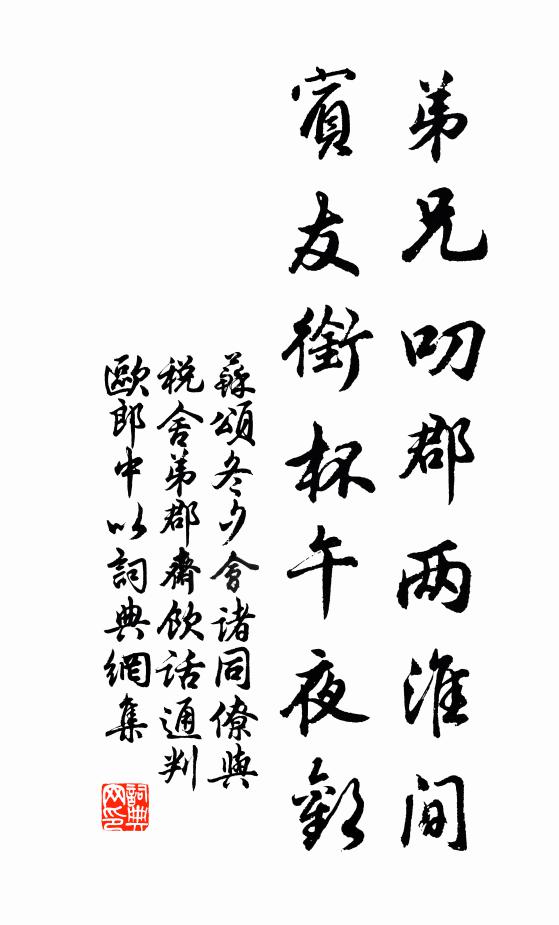 弟兄叨郡两淮间
賓友銜杯午夜歡
蘇頌冬夕會諸同僚與
税舍弟郡齋飲話通判
歐郎中以詞典網集
詞典网印